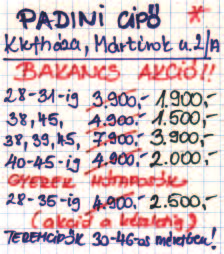 PADINI CIPŐ *
Kkfháza, Mártírok u. 2/A
BAKANCS AKCIÓ!!
28-31-ig 3.900,- 1.900,-
38, 45, 4.900,- 1.500,-
38, 39, 45, 7.900,- 3.900,-
40-45-ig 4.900,- 2.000,-
GYEREK HÓTAPOSÓK
28-35-ig 4.900,- 2.500,-
(akció a készletig)
TEREMCIPŐK 30-46-os méretben!